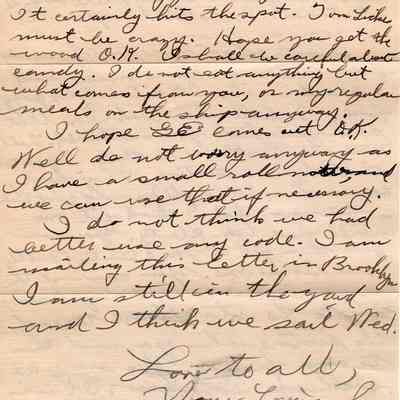 It certainly hits the spot. Tom Luther
must be crazy. Hope you get the
wood O.K. I shall be careful about
candy. I do not eat anything but
what comes from you, or my regular
meals on the ship anyway.
I hope comes out O.K.
Well do not worry anyway as
I have a small roll and
we can use that if necessary.
I do not think we had
better use any code. I am
mailing this letter in Brooklyn
I am still in the yard
and I think we sail Wed.
Love to all,